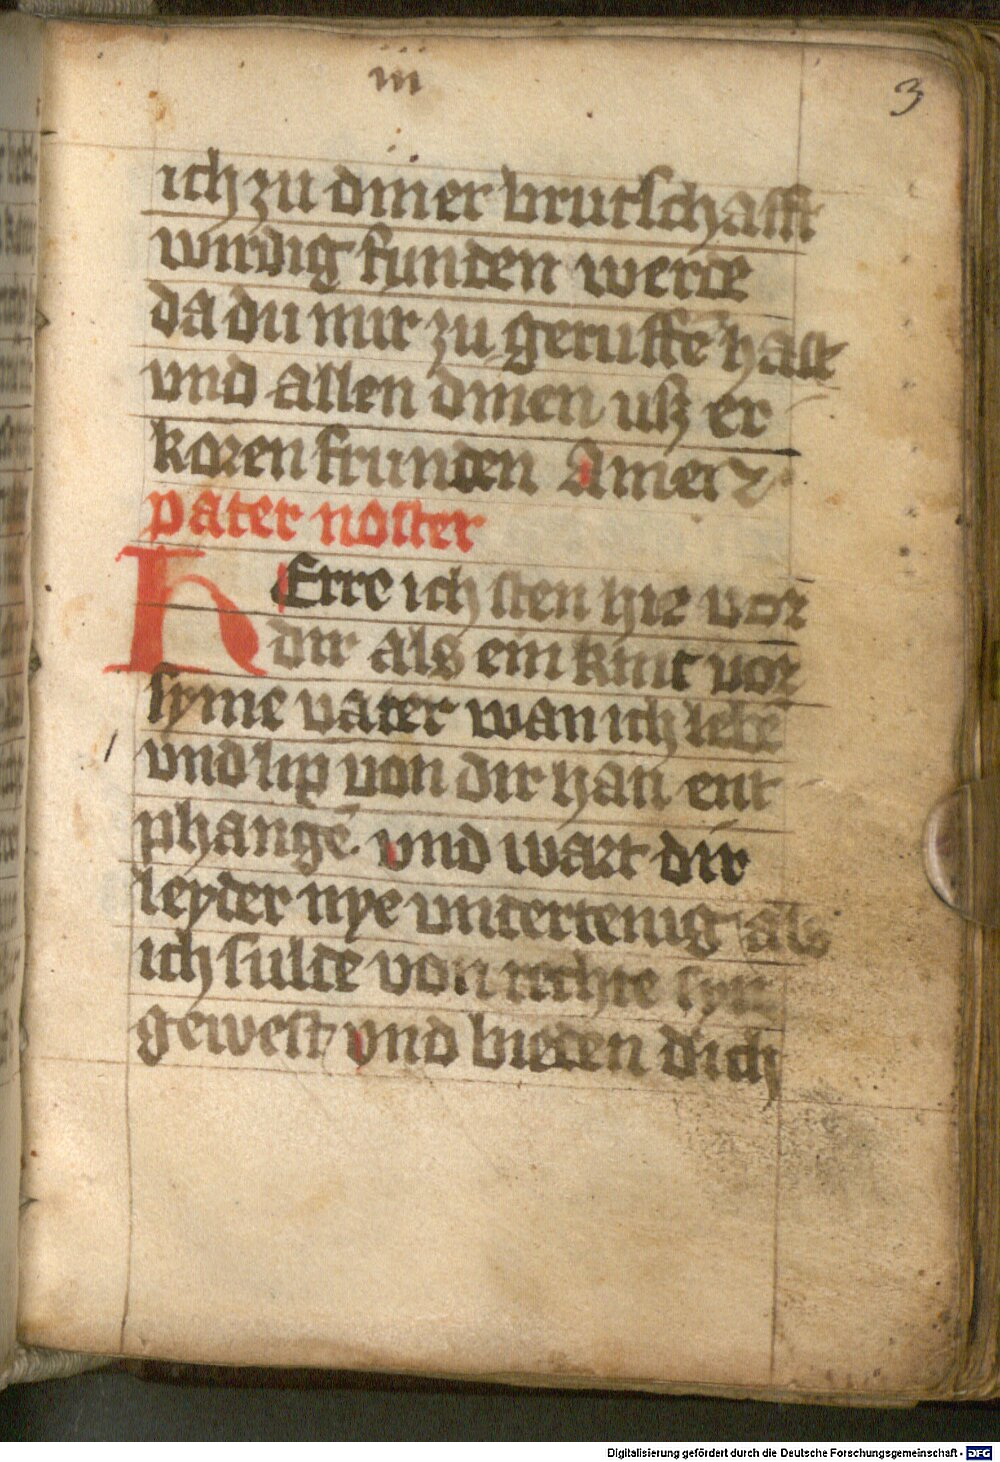 iii
3
ich zu diner brutschafft
wirdig funden werde
da du mir zu geruffē hast
vnd allen dinen uß er
koren frunden Amen
pater noster
HErre ich sten hie vor
dir als ein kint vor
syme vater wan ich lebē
vnd lip von dir han ent
phangē vnd wart dir
leyder nye vndertenig als
ich sulde von rechte syn
gewest vnd bieden dich
Digitalisierung gefördert durch die Deutsche Forschungsgemeinschaft - DFG